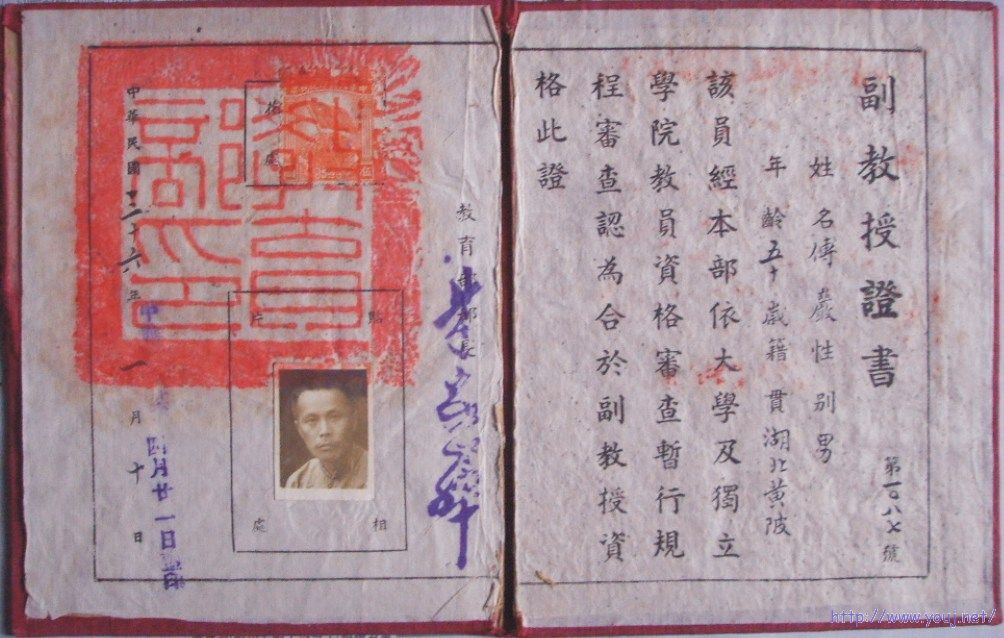 副教授證書
第一〇八七號
姓名傅嚴性別男
年齡五十歲籍貫湖北黃陂
該員經本部依大學及獨立
學院教員資格審查暫行規
程審查認為合於副教授資
格此證
教育部部長
點
相
片
處
中華民國三十六年一月十日
四月廿一日
http://www.youj.net/